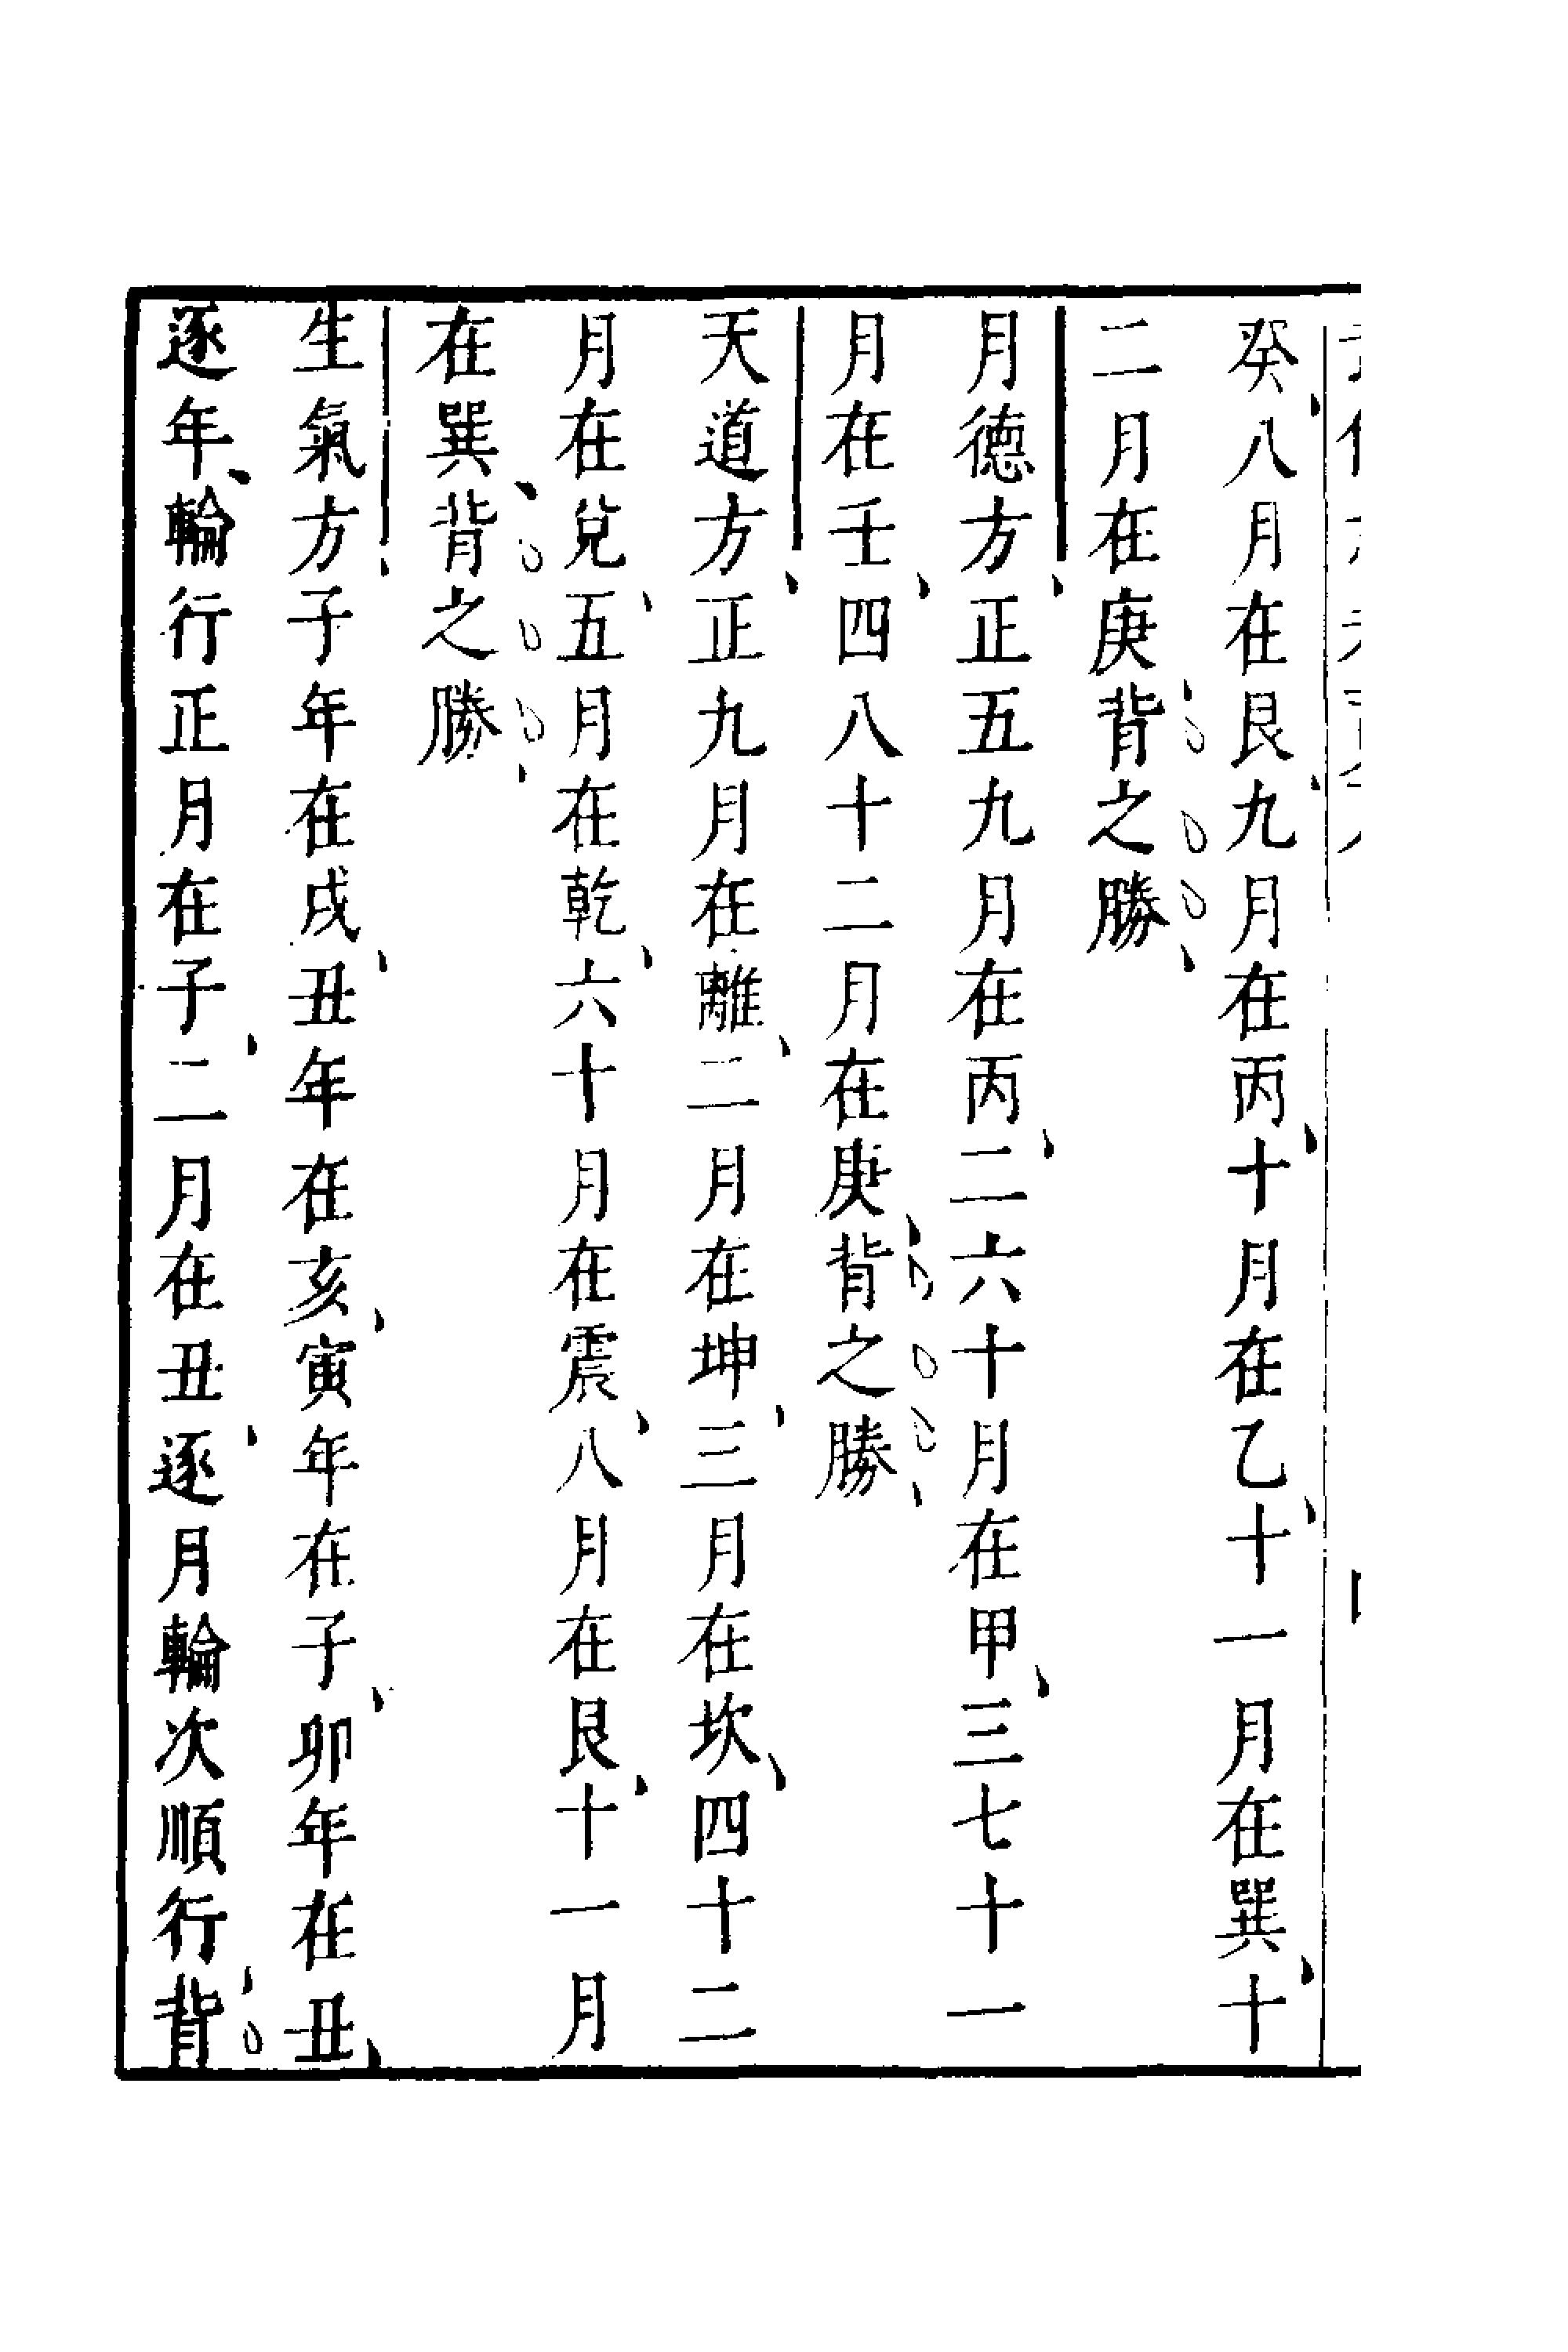 癸八月在艮九月在丙十月在乙十一月在巽十
二月在庚背之勝
月德方正五九月在丙二六十月在甲三七十一
月在壬四八十二月在庚背之勝
天道方正九月在離二月在坤三月在坎四十二
月在兌五月在乾六十月在震八月在艮十一月
在巽背之勝
生氣方子年在戌丑年在亥寅年在子卯年在丑
逐年輪行正月在子二月在丑逐月輪次順行背